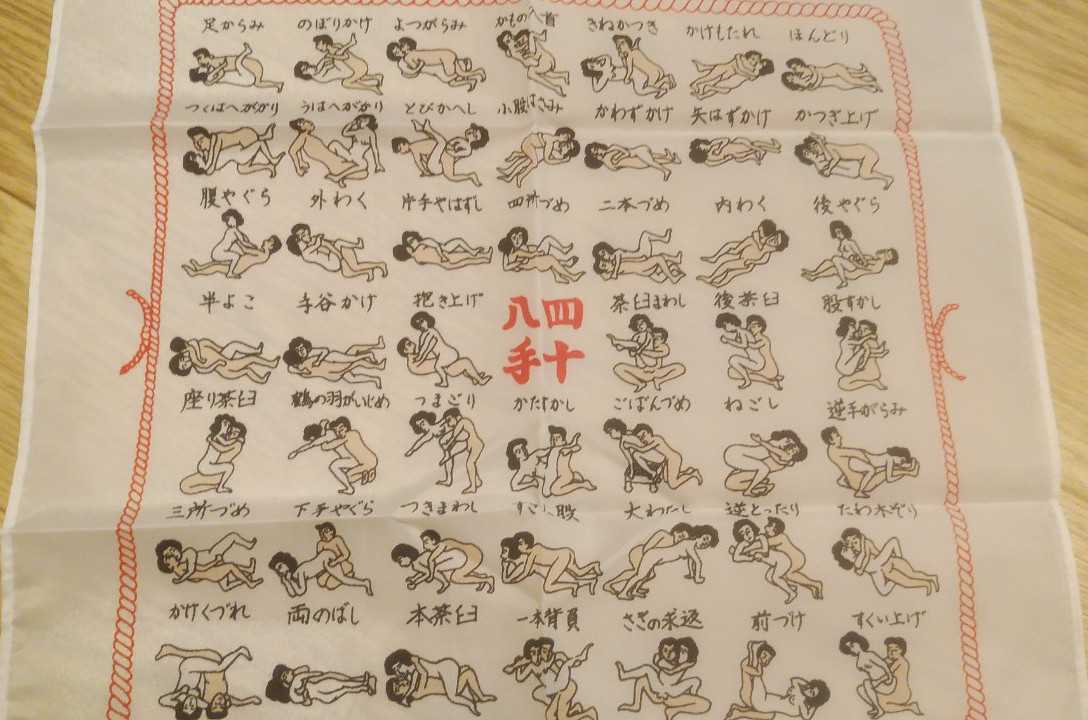 足からみ のぼりかけ よつがらみ かもの入首 きねかつぎ かけもたれ ほんどり
つくはへがかり うはへがかり とびかへし 小股はさみ かわずかけ 矢はずかけ かつぎ上げ
腹やぐら 外わく 片手やはずし 四所づめ 二本づめ 内わく 後やぐら
半よこ 手谷かけ 抱き上げ 茶臼まわし 後茶臼 股すかし
四十
八手
座り茶臼 鶴の羽がいじめ つまどり かたすかし ごばんづめ ねごし 逆手がらみ
三所づめ 下手やぐら つきまわし 股 大わたし 逆とったり たわ木ぞり
かけくづれ 両のばし 本茶臼 一本背員 さぎの求返 前づけ すくい上げ